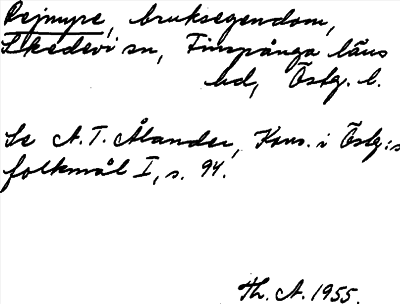 Rejmyre, bruksegendom,
Skedevi sn, Finspånga läns
hd, Östg. l.
Se N. T. Ålander, Kons. i Östg:s
folkmål I, s. 94.
Th. A. 1955.